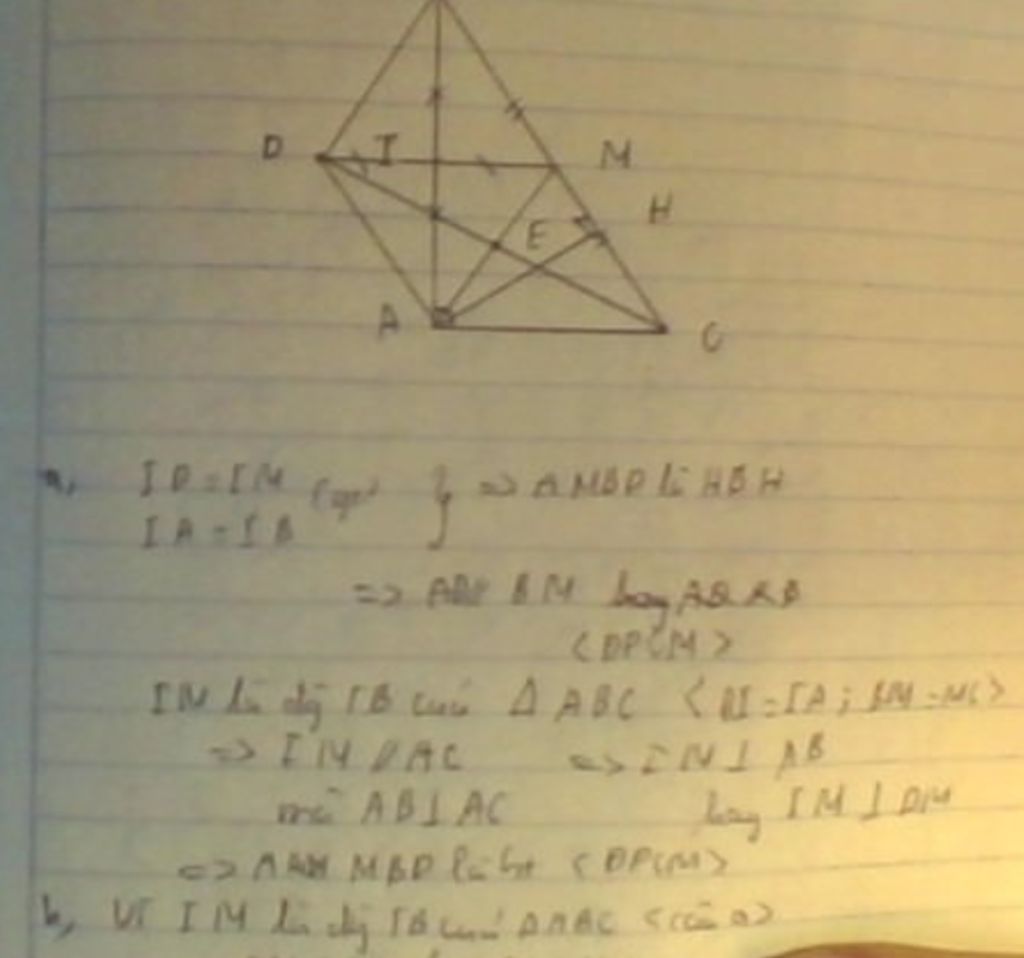 D I M
H
E
A C
a, ID = IM
IA = IB } => AMBD là HBH
=> AD// BM hay
<ĐPCM>
IM là đg TB của Δ ABC <BI = IA; BM = MC>
=> IM // AC => IM ⊥ AB
mà AB ⊥ AC hay IM ⊥ DM
=> MBD là <ĐPCM>
b, Vì IM là đg TB của ΔABC <câu a>